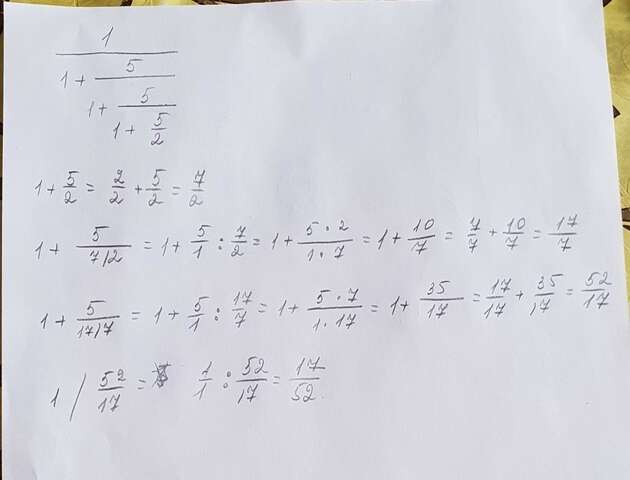 1
1 + 5
1 + 5
1 + 5/2
1 + 5/2 = 2/2 + 5/2 = 7/2
1 + 5/7/2 = 1 + 5/1 : 7/2 = 1 + 5·2/1·7 = 1 + 10/7 = 7/7 + 10/7 = 17/7
1 + 5/17/7 = 1 + 5/1 : 17/7 = 1 + 5·7/1·17 = 1 + 35/17 = 17/17 + 35/17 = 52/17
1 / 52/17 = 1/1 : 52/17 = 17/52